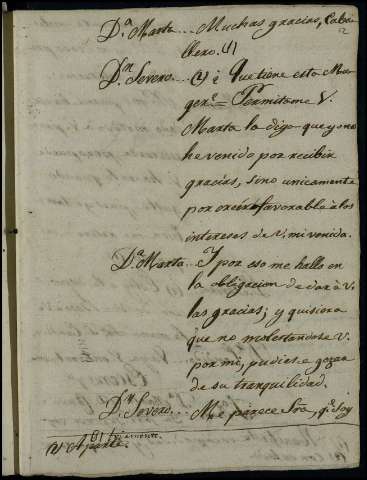 D.ª Marta... Muchas gracias, Caba-
llero. (1)
D.n Severo... (2) ¿ Que tiene esta Mu-
ger? = Permitame V.
Marta la diga que yo no
he venido por recibir
gracias, sino unicamente
por creer favorable à los
intereses de V. mi venida.
D.ª Marta... Y por eso me hallo en
la obligacion de dar à V.
las gracias; y quisiera
que no molestandose V.
por mi, pudiese gozar
de su tranquilidad.
D.n Severo... Me parece Sra, q.e soy
(1) friamente.
(2) Aparte.